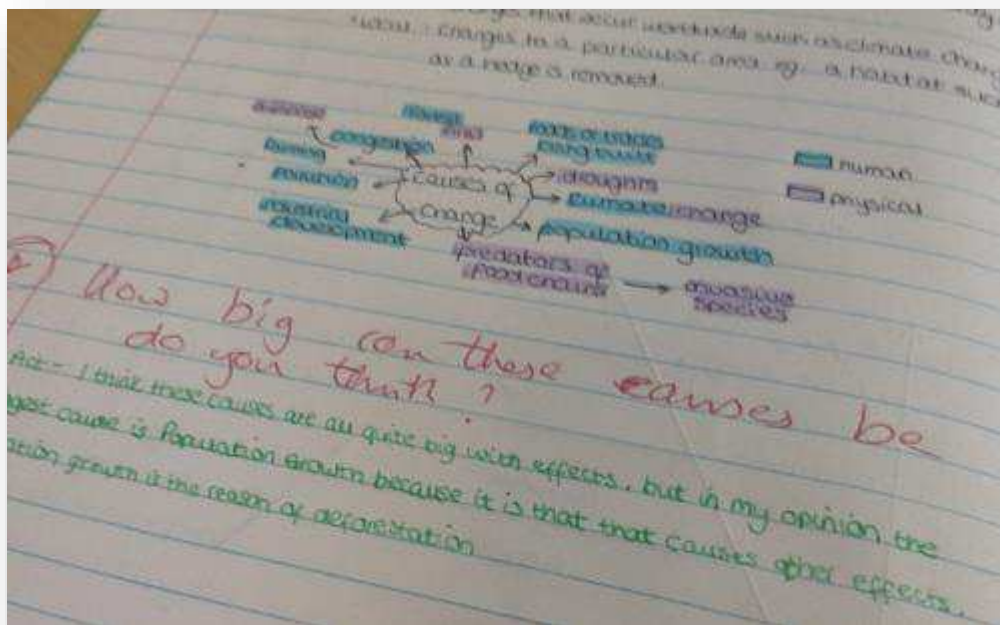 that occur worldwide such as climate
changes to a particular area eg. a habitat such
as a hedge is removed.
disease
congestion
farming
pollution
industry
development
roads or
being built
droughts
climate change
population growth
predators of
food chains
invasive
species
causes of
change
human
physical
How big can these causes be
do you think?
Act - I think these causes are all quite big with effects. but in my opinion the
cause is Population Growth because it is that that causes other effects.
growth is the reason of deforestation